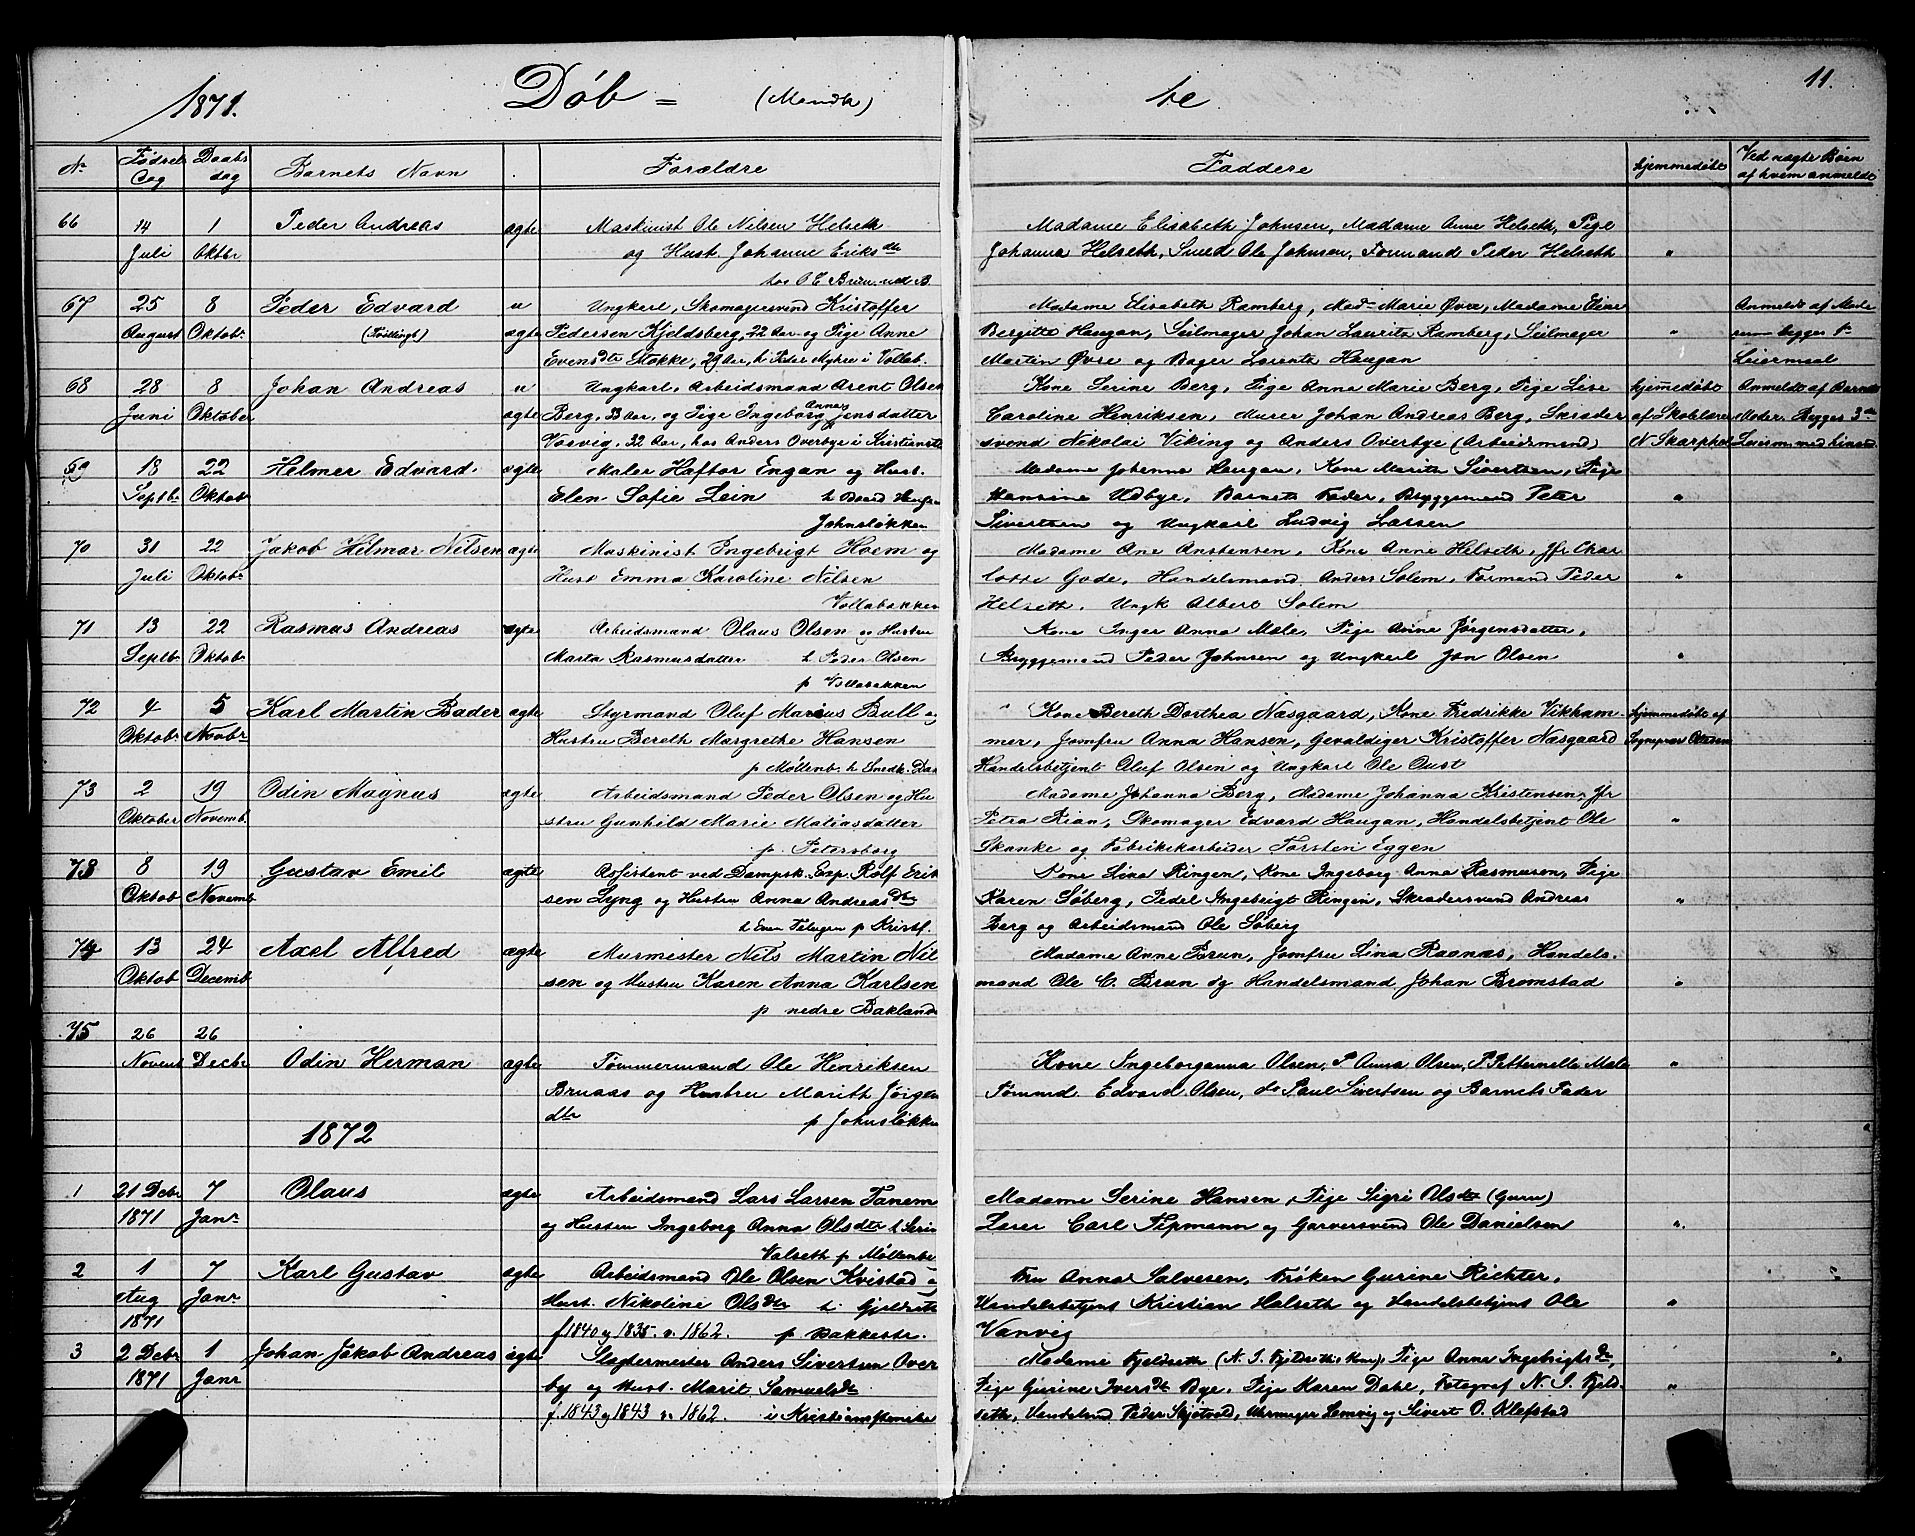 1871. Döb = (Mandk) te 11.
No Fødsels Dag Daabs dag Barnets Navn Forældre Faddere hjemmedöbt Ved uægte Børn af hvem anmeldt
66 14 Juli 1 Oktbr Peder Andreas ægte
Maskinist Ole Nilsen Helseth
og Hust. Johanne Eriksdtr
hos O. E. Brun ved B.
Madame Elisabeth Johnsen, Madame Anne Helseth, Pige
Johanna Helseth, Smed Ole Johnsen, Formand Peder Helseth "
67 25 August 8 Oktobr Peder Edvard (Tvillingb) u ægte
Ungkarl, Skomagersvend Kristoffer
Pedersen Kjeldsberg, 22 Aar og Pige Anne
Evensdtr Stokke, 29 Aar, h. Peder Myhre i Vollab.
Madame Elisabeth Ramberg, Mad. Marie Øvre, Madame Eline
Bergitte Haugan, Seilmager Johan Lauritz Ramberg, Seilmager
Martin Øvre og Bager Lorents Haugan "
Anmeldt af Mode
begges 1ste
Leiermaal
68 28 Juni 8 Oktober Johan Andreas u ægte
Ungkarl, Arbeidsmand Arent Olsen
Berg, 33 Aar, og Pige Ingeborg Anna Jensdatter
Vasvig, 32 Aar, hos Anders Overbye i Kristianste
Kone Serine Berg, Pige Anna Marie Berg, Pige Lise
Caroline Henriksen, Murer Johan Andreas Berg, Skræder
svend Nikolai Viking og Anders Overbye (Arbeidsmand)
hjemmedöbt
af Skolelærer
N. Skarphol
Anmeldt af Barnets
Moder. Begges 3die
Leierm. med hinand
69 18 Septbr 22 Oktob Helmer Edvard ægte
Maler Haftor Engan og Hust.
Elen Sofie Lein
Johnsløkken
Madame Johanna Haugan, Kone Marit Sivertsen, Pige
Hansine Udbye, Barnets Fader, Bryggemand Peter
Sivertsen og Ungkarl Ludvig Larsen "
70 31 Juli 22 Oktobr Jakob Hilmar Nilsen ægte
Maskinist Ingebrigt Hoem og
Hust Emma Karoline Nilsen
Vollabakken
Madame Ane Anstensen, Kone Anne Helseth, Jfr Char
lotte Gode, Handelsmand Anders Solem, Formand Peder
Helseth, Ungk Albert Solem "
71 13 Septbr 22 Oktobr Rasmus Andreas ægte
Arbeidsmand Olaus Olsen og Hustru
Marta Rasmusdatter h. Peder Olsen
p Vollabakken
Kone Inger Anna Male, Pige Anna Jørgensdatter,
Bryggemand Peder Johnsen og Ungkarl Jon Olsen "
72 4 Oktobr 5 Novbr Karl Martin Bader ægte
Styrmand Oluf Marius Bull og
Hustru Bereth Margrethe Hansen
p Møllenb. h Smedk. Dan
Kone Bereth Dorthea Næsgaard, Kone Fredrikke Vikham-
mer, Jomfru Anna Hansen, Gevaldiger Kristoffer Næsgaard
Handelsbetjent Oluf Olsen og Ungkarl Ole Oust
hjemmedöbt af
Sognepræst
73 2 Oktober 19 Novemb. Odin Magnus ægte
Arbeidsmand Peder Olsen og Hu
stru Gunhild Marie Matiasdatter
p. Petersborg
Madame Johanna Berg, Madame Johanna Kristensen, Jfr
Petra Rian, Skomager Edvard Haugan, Handelsbetjent Ole
Skanke og Fabrikkarbeider Torsten Eggen "
73 8 Oktob 19 Novemb Gustav Emil ægte
Assistent ved Dampsk. Exp. Rolf Erik
sen Lyng og Hustru Anna Andreasdtr
h Even p Kristf.
Kone Lina Ringen, Kone Ingeborg Anna Rasmussen, Pige
Karen Søberg, Pedel Ingebrigt Ringen, Skrædersvend Andreas
Berg og Arbeidsmand Ole Søberg "
74 13 Oktob 24 Decemb Axel Alfred ægte
Murmester Nils Martin Nil
sen og Hustru Karen Anna Karlsen
p nedre Baklande
Madame Anne Brun, Jomfru Lina Raanæs, Handels-
mand Ole C. Brun og Handelsmand Johan Bromstad "
75 26 Novemb 26 Decbr Odin Herman ægte
Tømmermand Ole Henriksen
Bruaas og Hustru Marith Jörgen
dtr p Johnsløkke
Kone Ingeborganna Olsen, P Anna Olsen, P Petternella Male
Tømmd. Edvard Olsen, do Paul Sivertsen og Barnets Fader "
1872
1 21 Decbr 1871 7 Janr Olaus ægte
Arbeidsmand Lars Larsen Tanem
og Hustru Ingeborg Anna Olsdtr h Serin
Valseth p Møllenbe
Madame Serine Hansen, Pige Sigri Olsdtr (Guru)
Lærer Carl Tipmann og Garversvend Ole Danielsen "
2 1 Aug 1871 7 Janr Karl Gustav ægte
Arbeidsmand Ole Olsen Kvistad og
Hust. Nikoline Olsdtr h. Gjeldseth
f 1840 og 1835 v. 1862. p Bakkestr.
Fru Anna Salvesen, Frøken Gurine Richter,
Handelsbetjent Kristian Halseth og Handelsbetjent Ole
Vanvig "
3 2 Decbr 1871 1 Janr Johan Jakob Andreas ægte
Slagtermester Anders Sivertsen Over
by og Hust. Marit Samuelsdtr
f. 1843 og 1843 v. 1862. i Kristiansstensbe
Madame Fjeldseth (N. S. Fjeldseths Kone), Pige Anna Ingebrigtsdtr,
Pige Gurine Iversdtr Bye, Pige Karen Dahl, Fotograf N. S. Fjeld-
seth, Handelsmd Peder Skjetvold, Uhrmager Lemvig og Sivert O. Klefstad "